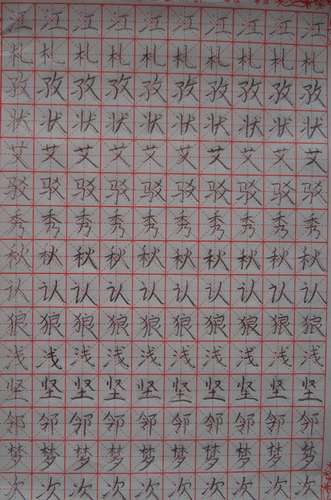 江江江江江江江江江江
札札札札札札札札札札
孜孜孜孜孜孜孜孜孜孜
状状状状状状状状状状
艾艾艾艾艾艾艾艾艾艾
驳驳驳驳驳驳驳驳驳驳
秀秀秀秀秀秀秀秀秀秀
秋秋秋秋秋秋秋秋秋秋
认认认认认认认认认认
狼狼狼狼狼狼狼狼狼狼
浅浅浅浅浅浅浅浅浅浅
坚坚坚坚坚坚坚坚坚坚
邻邻邻邻邻邻邻邻邻邻
梦梦梦梦梦梦梦梦梦梦
次次次次次次次次次次